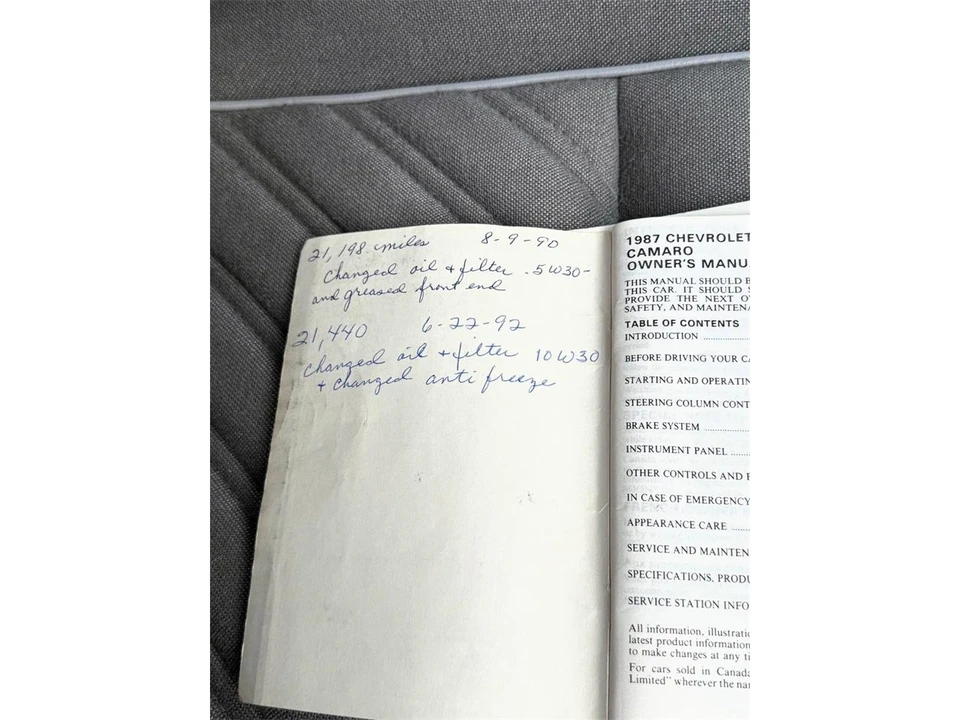 21,198 miles 8-9-90
Changed oil + filter .5W30-
and greased front end
21,440 6-22-92
changed oil + filter 10W30
+ changed anti freeze
1987 CHEVROLET
CAMARO
OWNER'S MANUA
THIS MANUAL SHOULD B
THIS CAR. IT SHOULD S
PROVIDE THE NEXT O
SAFETY, AND MAINTENA
TABLE OF CONTENTS
INTRODUCTION
BEFORE DRIVING YOUR CA
STARTING AND OPERATIN
STEERING COLUMN CONT
BRAKE SYSTEM
INSTRUMENT PANEL
OTHER CONTROLS AND F
IN CASE OF EMERGENCY
APPEARANCE CARE
SERVICE AND MAINTEN
SPECIFICATIONS, PRODU
SERVICE STATION INFO
All information, illustratio
latest product information
to make changes at any ti
For cars sold in Canada
Limited" wherever the nam